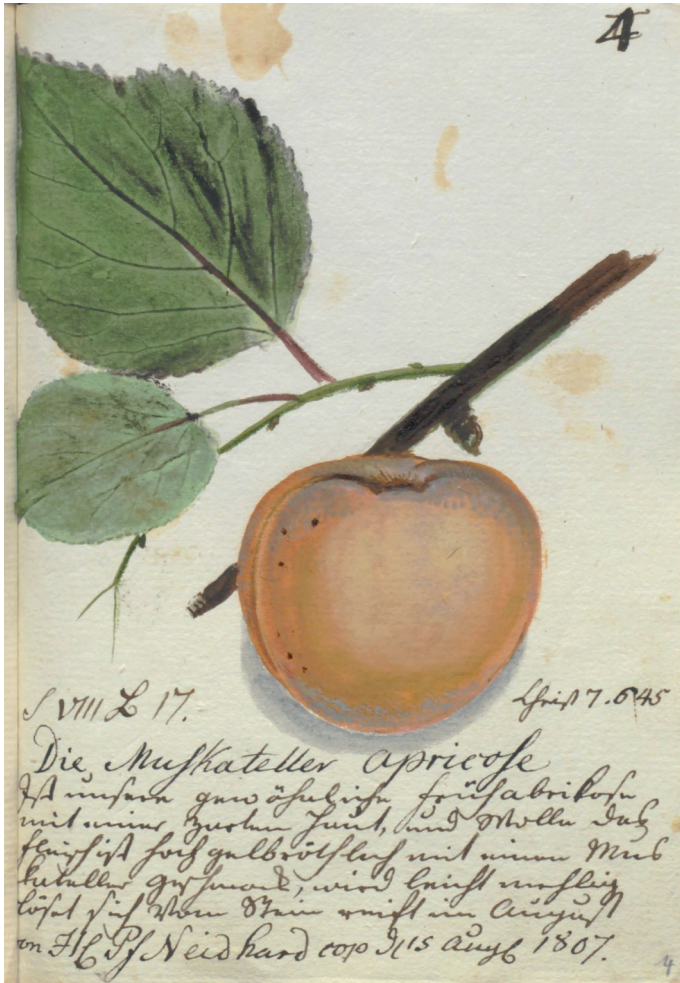 4
S VIII L 17.
Christ 7. 645
Die Muskateller Apricose
Ist unsere gewöhnliche frühabrikose
mit einer zarten Haut, und Wolle das
fleisch ist hochgelbröthlich mit einen Mus
kateller geschmack, wird leicht mehlig
löset sich vom Stein reift im August
von Pf Neidhard cop d 15 Augt 1807.
4